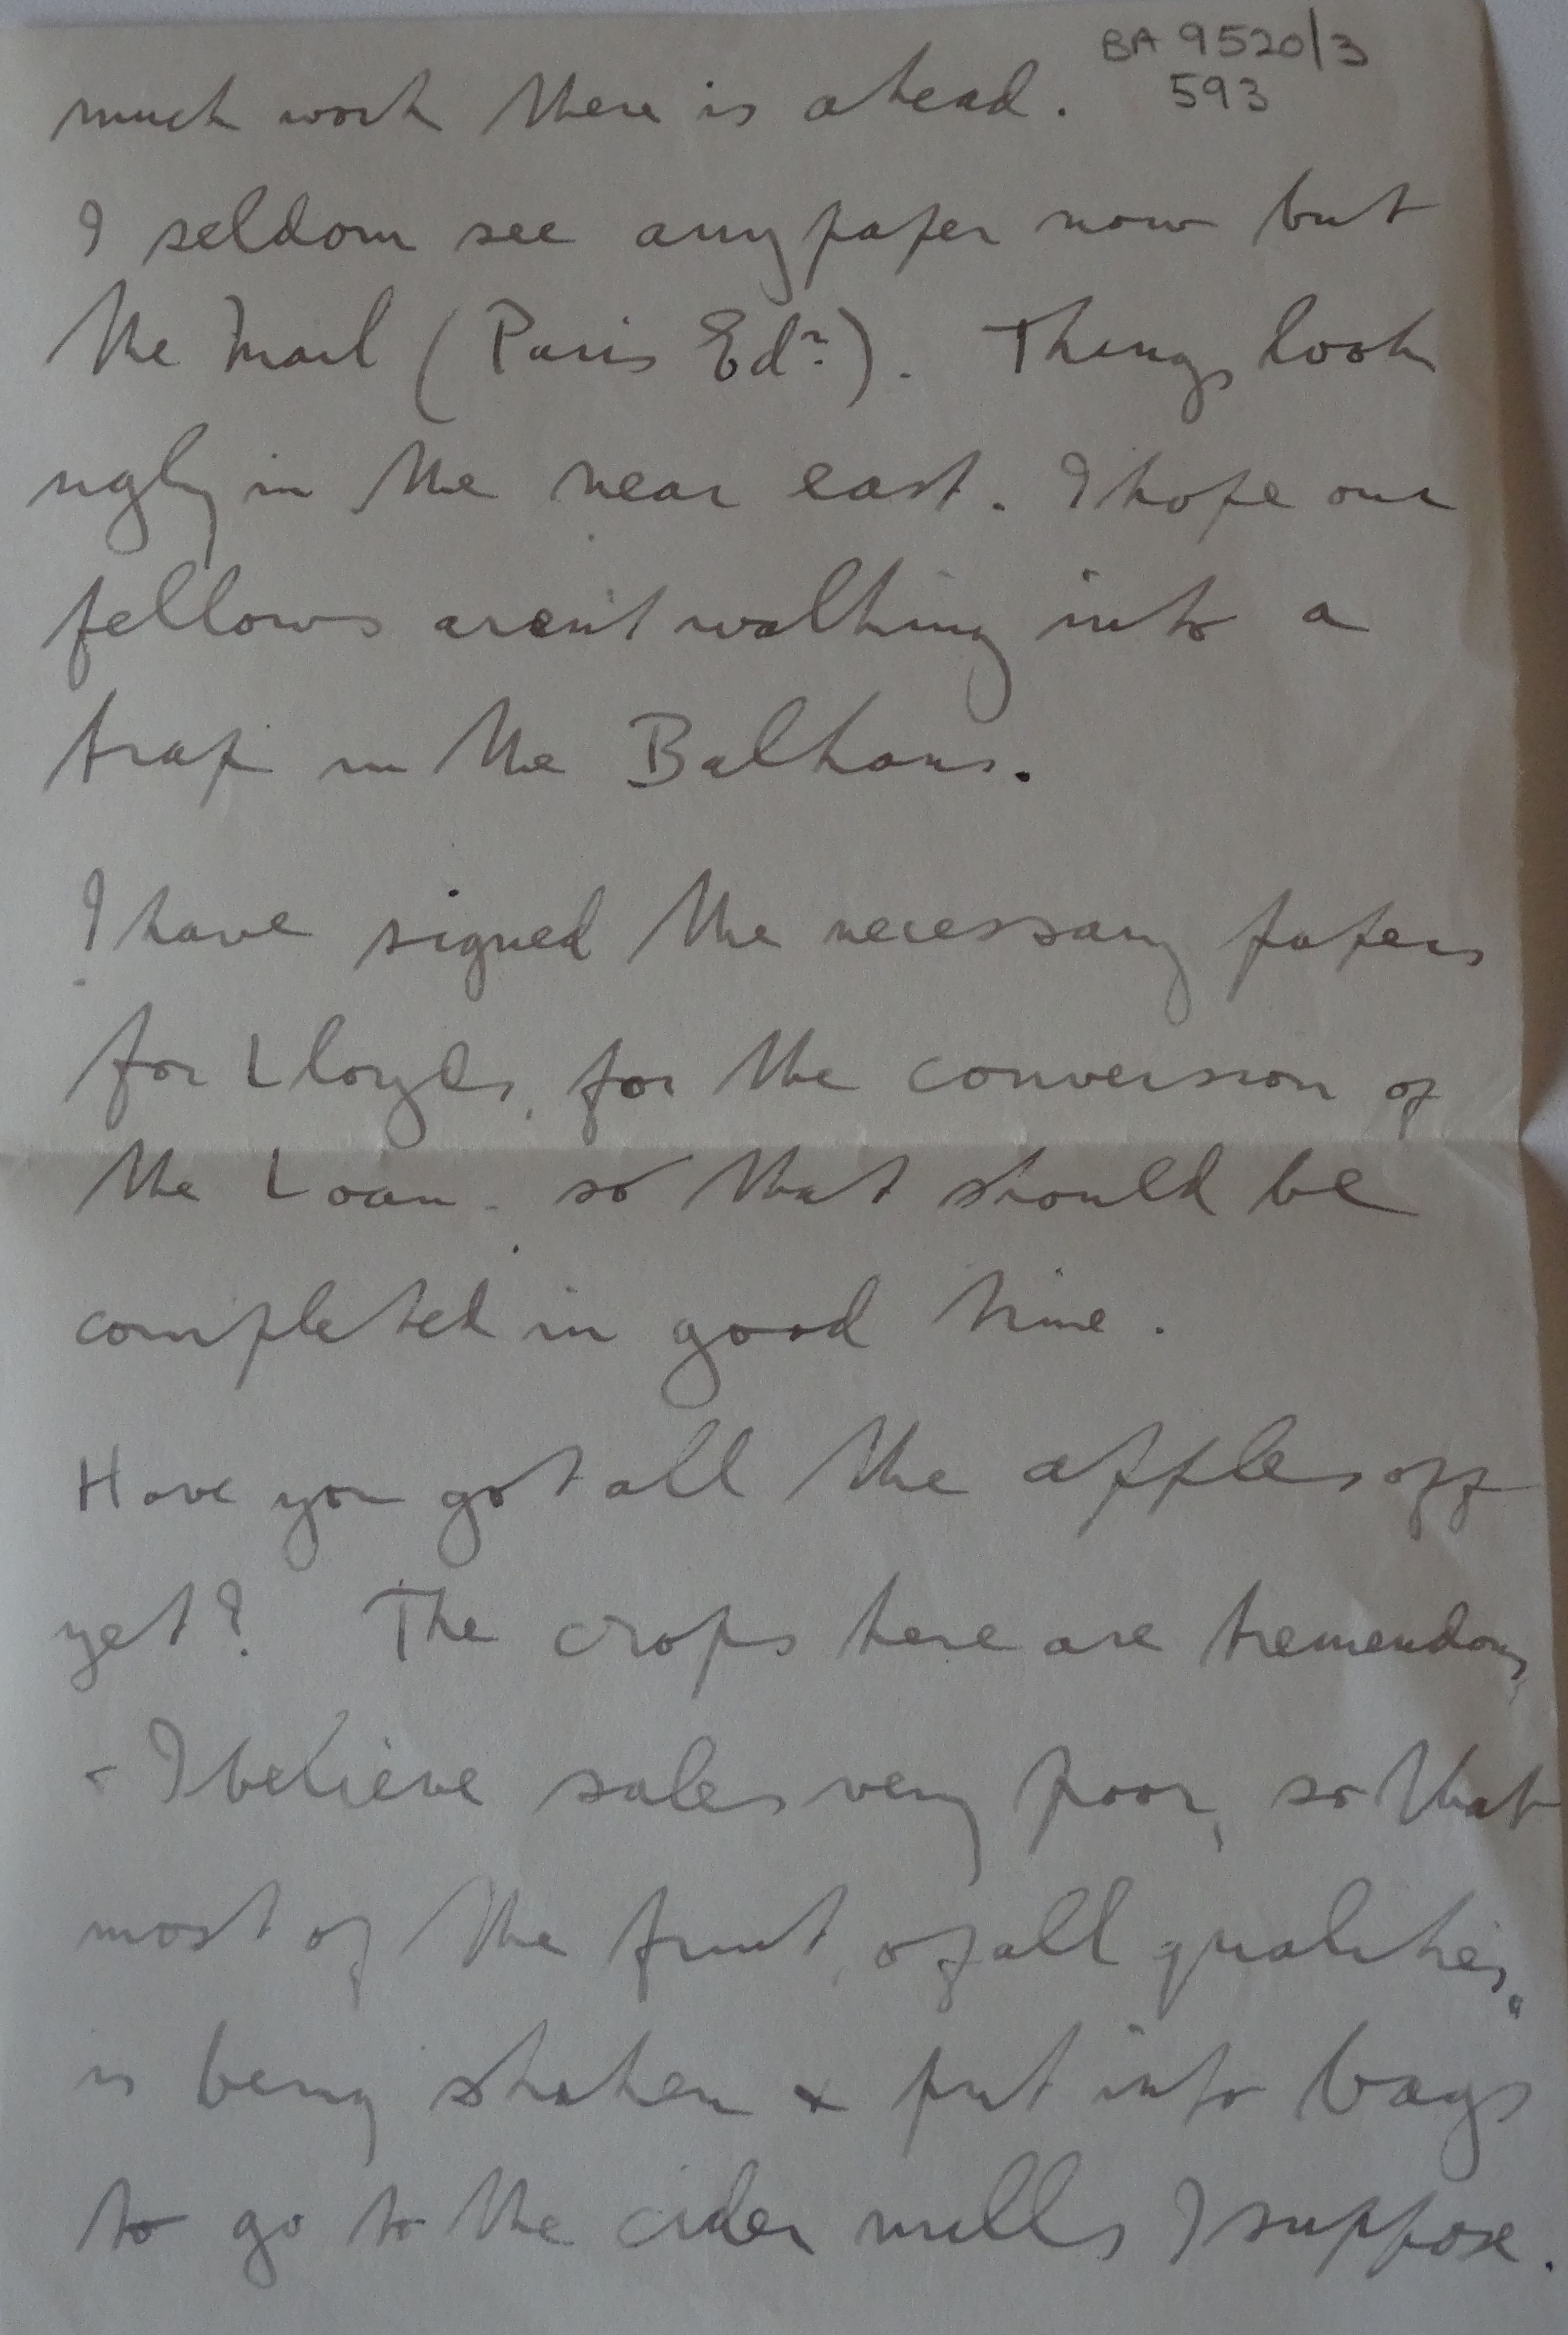 BA 9520/3
593
much work there is ahead.
I seldom see any paper now but
the Mail (Paris Edn.). Things look
ugly in the near east. I hope our
fellows aren't walking into a
trap in the Balkans.
I have signed the necessary papers
for Lloyds, for the conversion of
the Loan. so that should be
completed in good time.
Have you got all the apples off
yet? The crops here are tremendous,
& I believe sales very poor, so that
most of the fruit, of all qualities,
is being shaken & put into bags
to go to the cider mills I suppose.